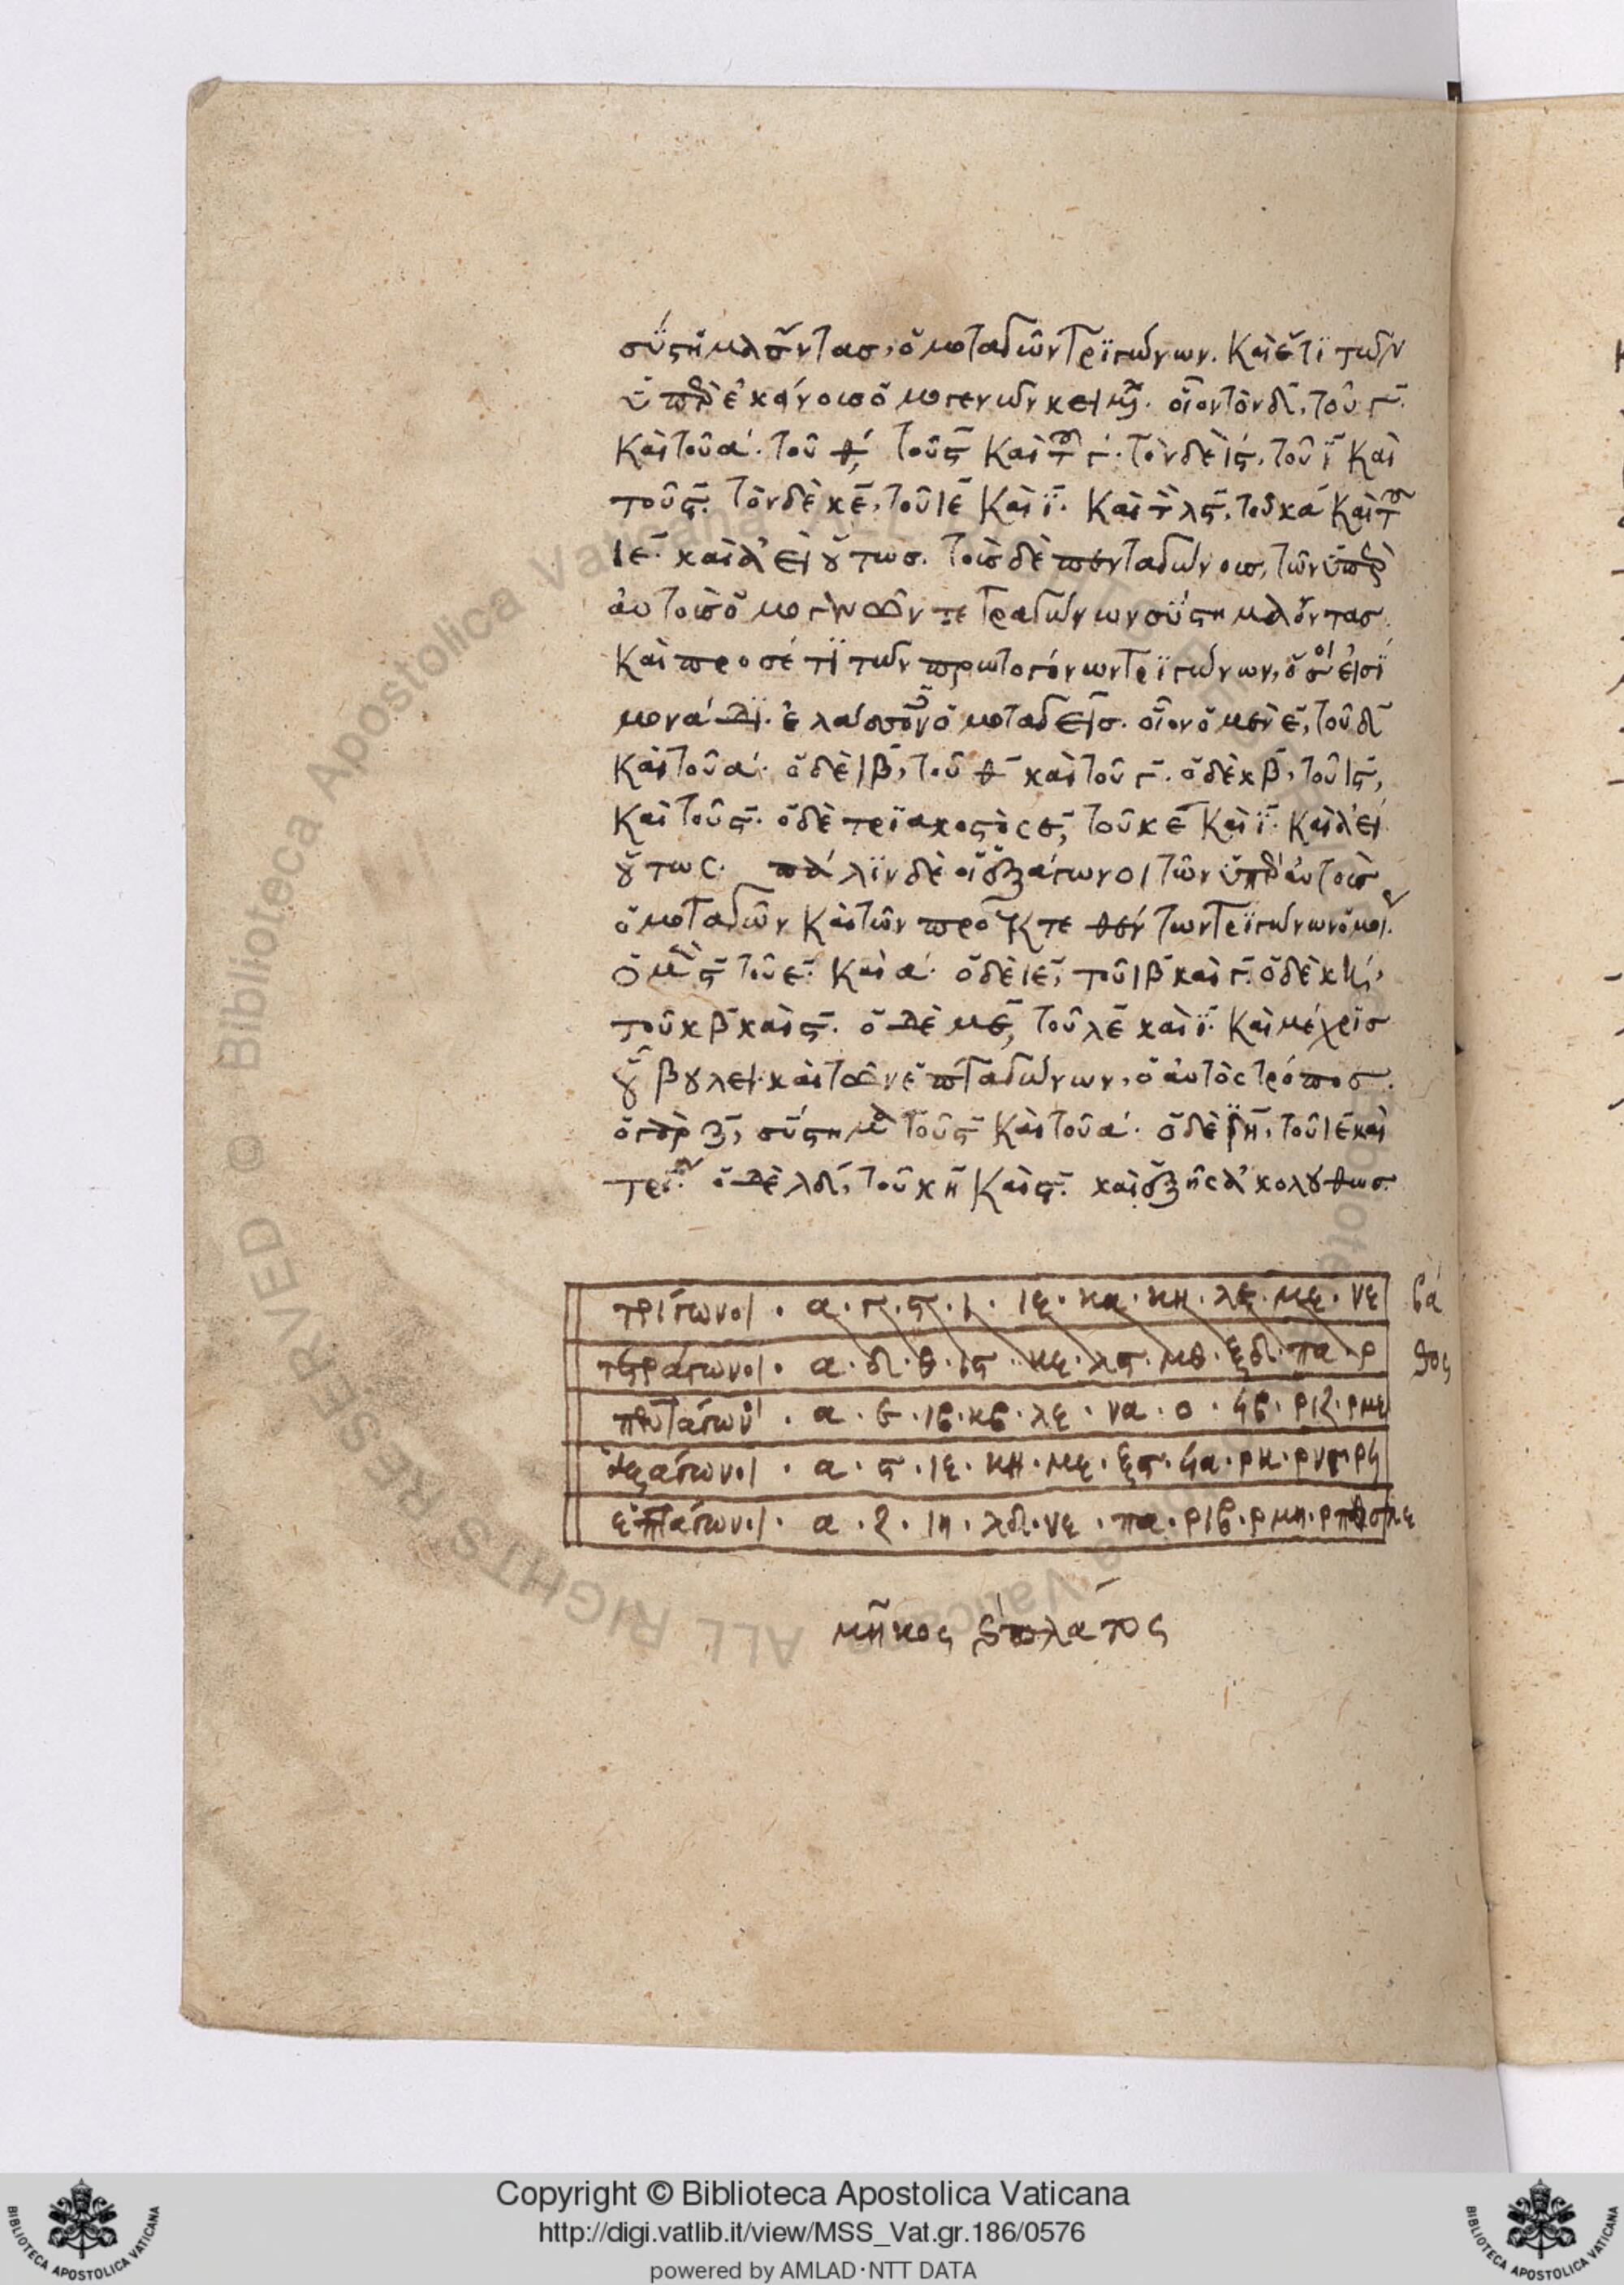 σύστημα ὄντας, ὁμοταγῶν τριγώνων. καὶ ἔτι τῶν
ὑπὲρ ἐκείνοις ὁμογενῶν κειμένων. οἷον τὸν δ, τοῦ γ
καὶ τοῦ α. τοῦ θ, τοῦ ς καὶ τοῦ γ. τὸν δὲ ις, τοῦ ι καὶ
τοῦ ς. τὸν δὲ κε, τοῦ ιε καὶ ι. καὶ τὸν λς, τοῦ κα καὶ τοῦ
ιε. καὶ ἀεὶ οὕτως. τοῖς δὲ πενταγώνοις, τῶν ὑπὲρ
αὐτοῖς ὁμογενῶν τετραγώνων σύστημα ὄντας.
καὶ προσέτι τῶν πρωτογόνων τριγώνων, ὅσοι εἰσὶ
μονάδι ἐλάσσονος ὁμοταγεῖς. οἷον ὁ μὲν ε, τοῦ δ
καὶ τοῦ α. ὁ δὲ ιβ, τοῦ θ καὶ τοῦ γ. ὁ δὲ κβ, τοῦ ις,
καὶ τοῦ ς. ὁ δὲ τριακοστὸς ε, τοῦ κε καὶ ι. καὶ ἀεὶ
οὕτως. πάλιν δὲ οἱ ἑξάγωνοι τῶν ὑπὲρ αὐτοῖς
ὁμοταγῶν καὶ τῶν προεκτεθέντων τριγώνων ὁμοίως.
ὁ μὲν ς τοῦ ε καὶ α. ὁ δὲ ιε, τοῦ ιβ καὶ γ. ὁ δὲ κη,
τοῦ κβ καὶ ς. ὁ δὲ με, τοῦ λε καὶ ι. καὶ μέχρις
οὗ βούλει. καὶ τῶν ἑπταγώνων, ὁ αὐτὸς τρόπος.
ὁ γὰρ ζ, σύστημα τοῦ ς καὶ τοῦ α. ὁ δὲ ιη, τοῦ ιε καὶ
τριῶν. ὁ δὲ λδ, τοῦ κη καὶ ς. καὶ ἑξῆς ἀκολούθως.
τρίγωνοι · α · γ · ς · ι · ιε · κα · κη · λς · με · νε βά
τετράγωνοι · α · δ · θ · ις · κε · λς · μθ · ξδ · πα · ρ θος
πεντάγωνοι · α · ε · ιβ · κβ · λε · να · ο · ϟβ · ριζ · ρμε
ἑξάγωνοι · α · ς · ιε · κη · με · ξς · ϟα · ρκ · ρνγ · ρϟ
ἑπτάγωνοι · α · ζ · ιη · λδ · νε · πα · ριβ · ρμη · ρπθ · σλε
μῆκος καὶ πλάτος
Copyright © Biblioteca Apostolica Vaticana
http://digi.vatlib.it/view/MSS_Vat.gr.186/0576
powered by AMLAD·NTT DATA